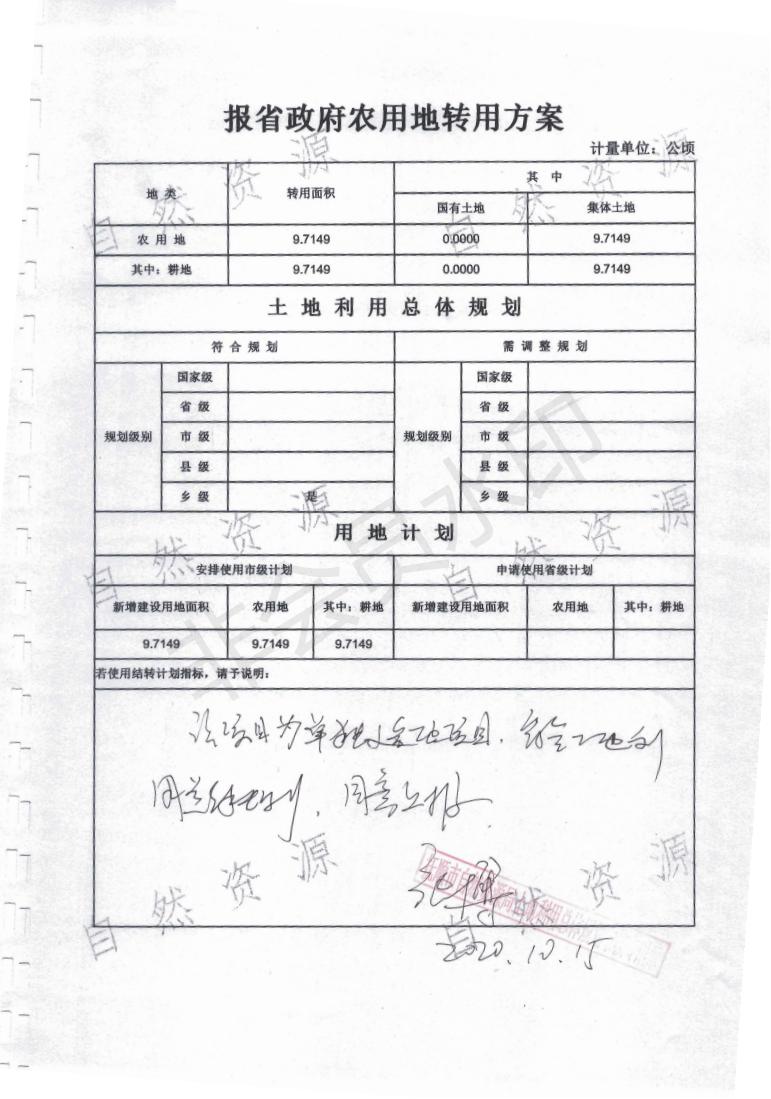 报省政府农用地转用方案
计量单位：公顷
地 类 转用面积 其 中
国有土地 集体土地
农 用 地 9.7149 0.0000 9.7149
其中：耕地 9.7149 0.0000 9.7149
土 地 利 用 总 体 规 划
符 合 规 划 需 调 整 规 划
规划级别 国家级 规划级别 国家级
省 级 省 级
市 级 市 级
县 级 县 级
乡 级 是 乡 级
用 地 计 划
安排使用市级计划 申请使用省级计划
新增建设用地面积 农用地 其中：耕地 新增建设用地面积 农用地 其中：耕地
9.7149 9.7149 9.7149
若使用结转计划指标，请予说明：
该项目为单独选址项目，符合土地利
用总体规划，同意上报。
2020.10.15
自然资源
自然资源
自然资源
自然资源
自然资源
自然资源
非会员水印